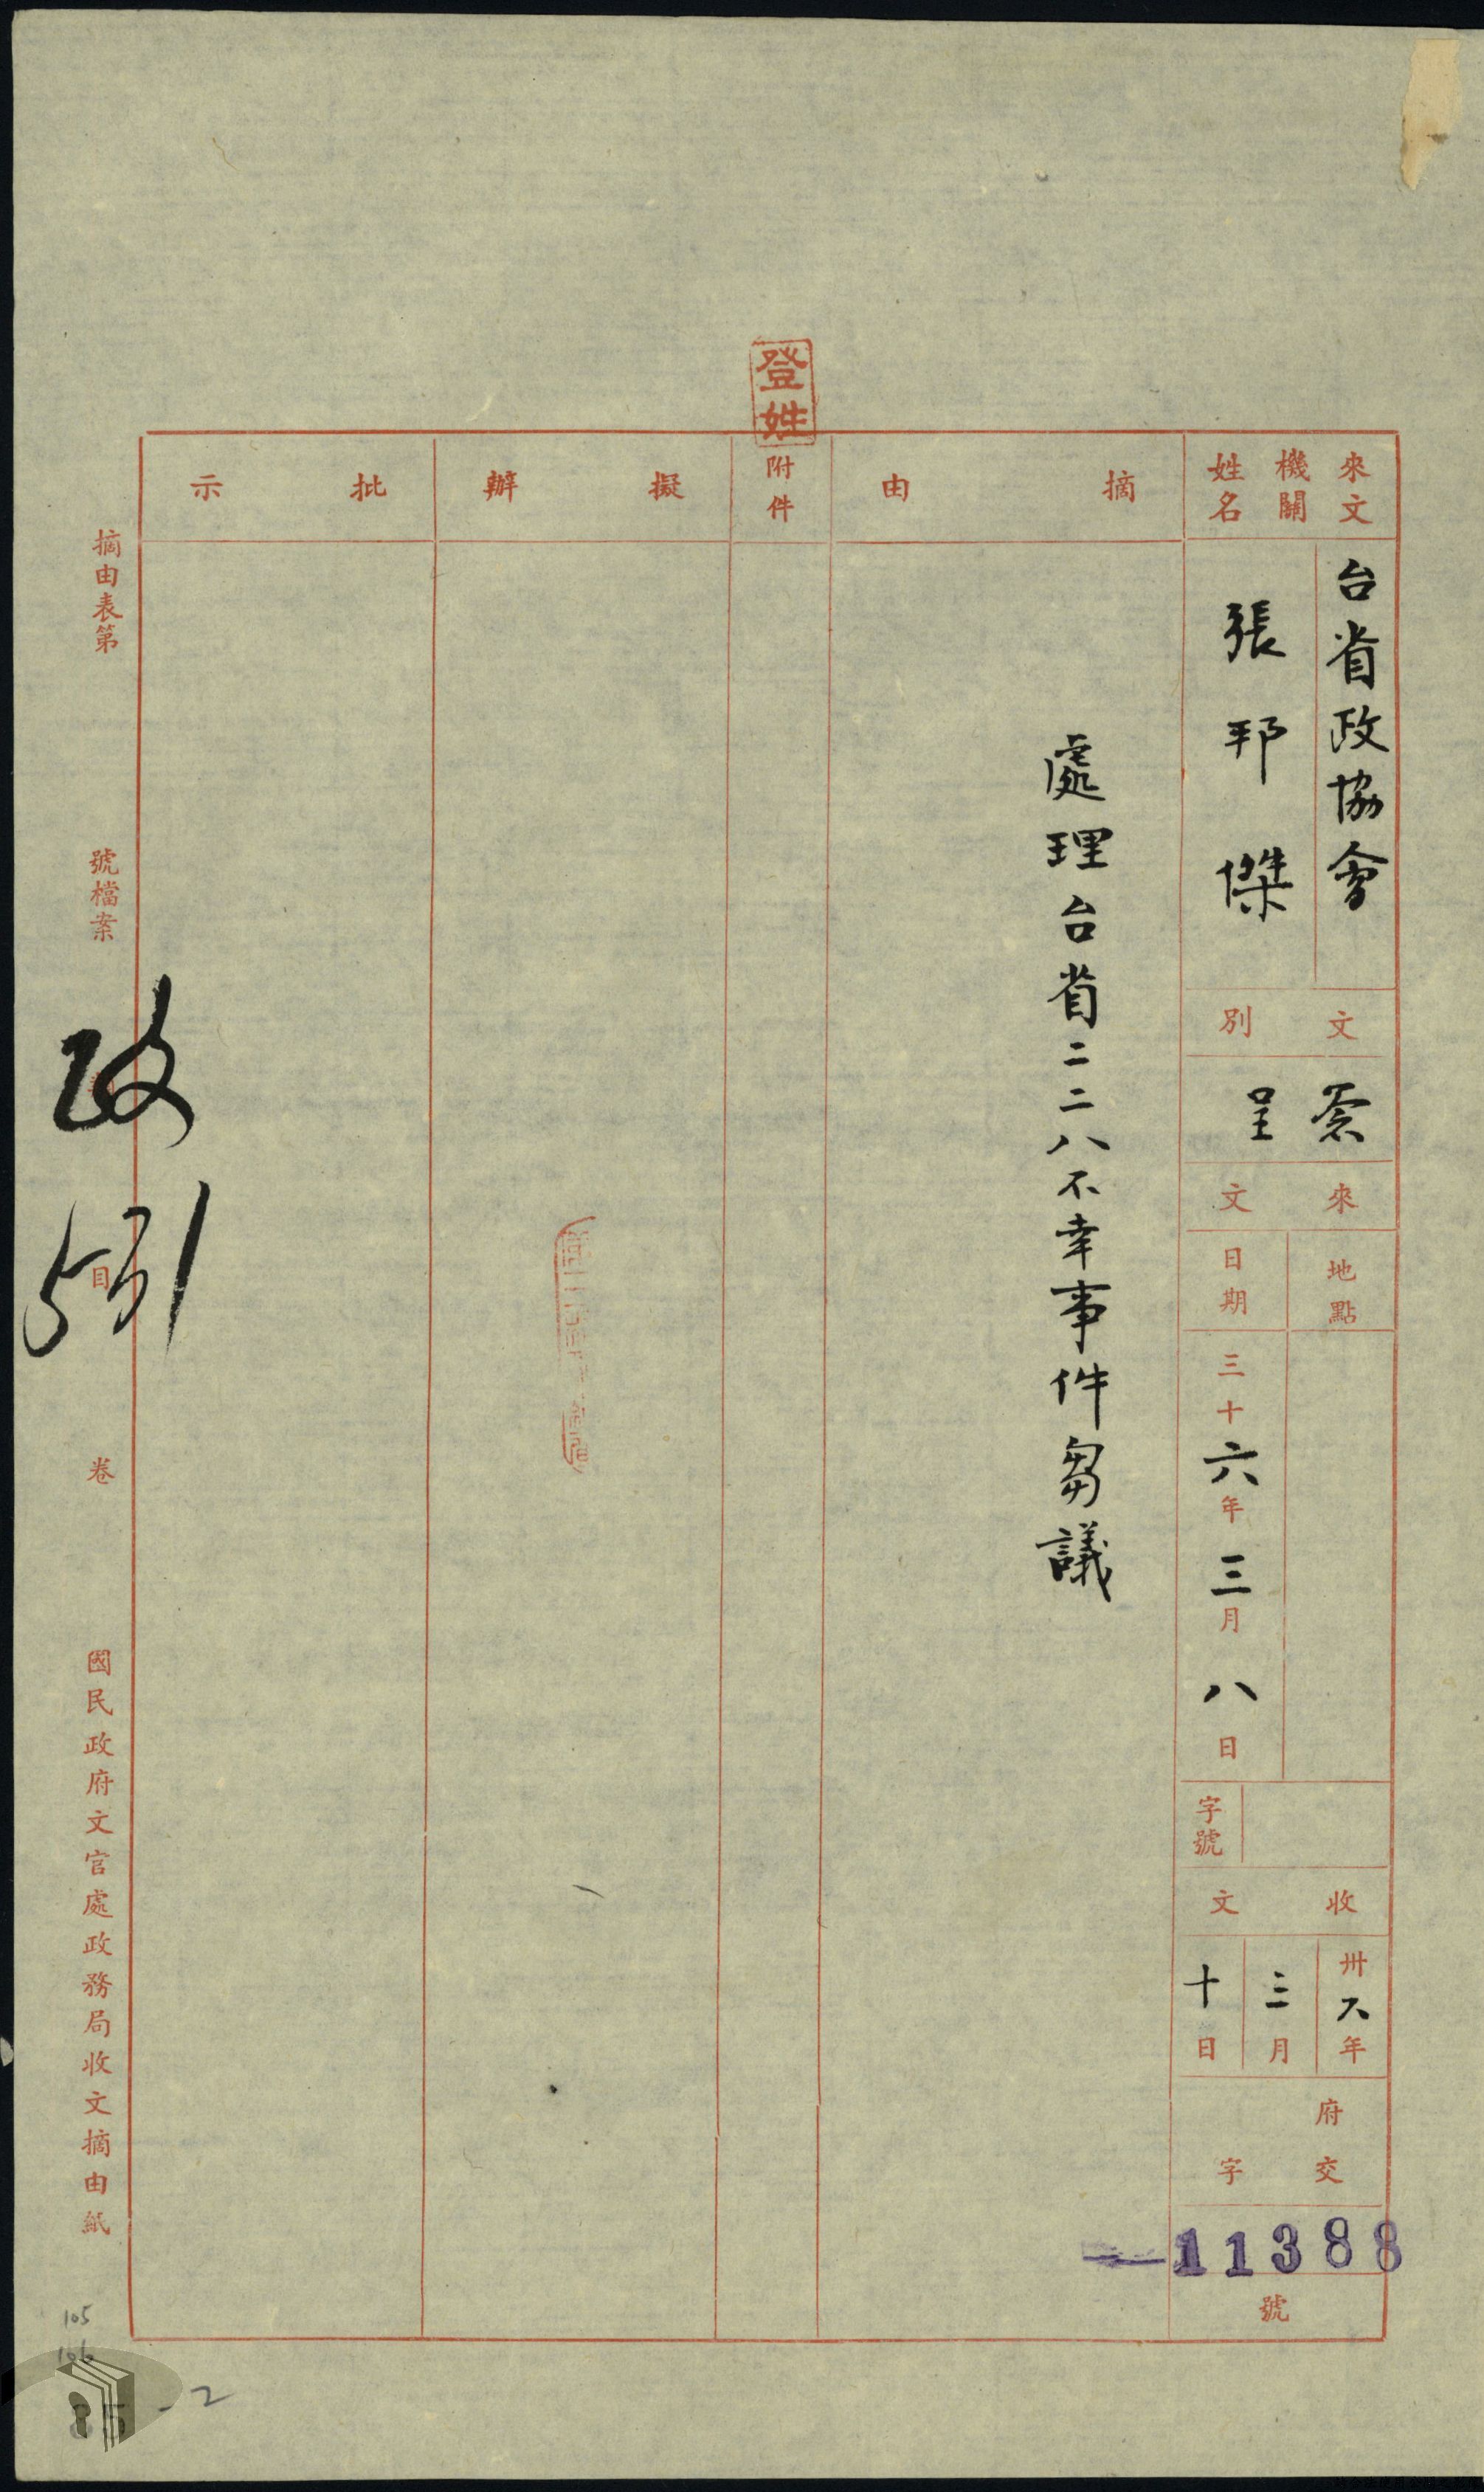 登姓
來文
機關
姓名
台省政協會
張邦傑
文別
呈
來文
地點
日期
三十六年三月八日
字號
收文
卅六年
三月
十日
府交
字
11388
號
摘由
處理台省二二八不幸事件芻議
附件
擬辦
批示
摘由表第
號檔案
政
目
531
卷
國民政府文官處政務局收文摘由紙
105
106
-2